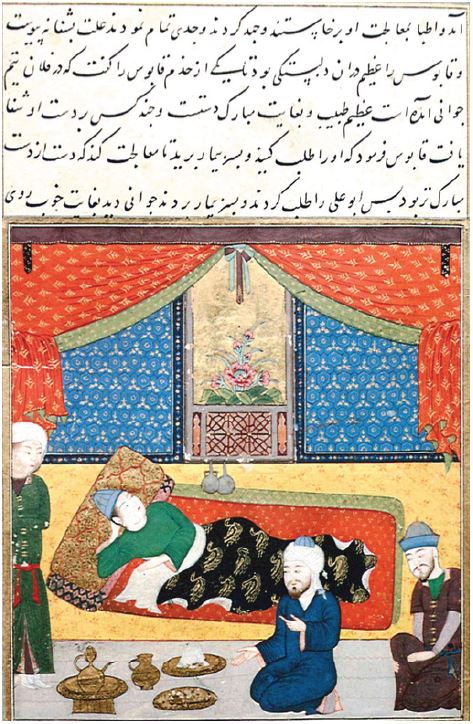 آمد و اطبا بمعالجت او برخاستند و جهد کردند و جدی تمام نمودند علت بشفا نه پیوست
و قابوس را عظیم دران دلبستگی بود تا یکی از خدم قابوس را گفت که در فلان تیم
جوانی آمده است عظیم طبیب و بغایت مبارک دست و چند کس بر دست او شفا
یافت قابوس فرمود که او را طلب کنید و بسر بیمار برید تا معالجت کند که دست از دست
مبارک تر بود پس ابو علی را طلب کردند و بسر بیمار بردند جوانی دید بغایت خوب روی